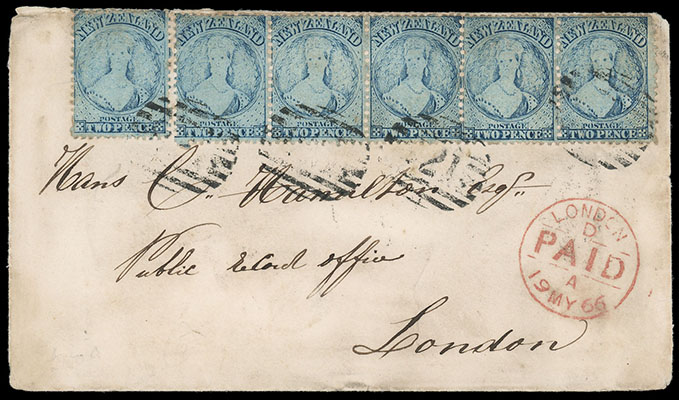 NEW ZEALAND NEW ZEALAND NEW ZEALAND NEW ZEALAND NEW ZEALAND NEW ZEALAND
POSTAGE POSTAGE POSTAGE POSTAGE POSTAGE POSTAGE
TWO PENCE TWO PENCE TWO PENCE TWO PENCE TWO PENCE TWO PENCE
Hans C. Hamilton Esqr.
Public record office
London
LONDON
D
PAID
A
19 MY 66